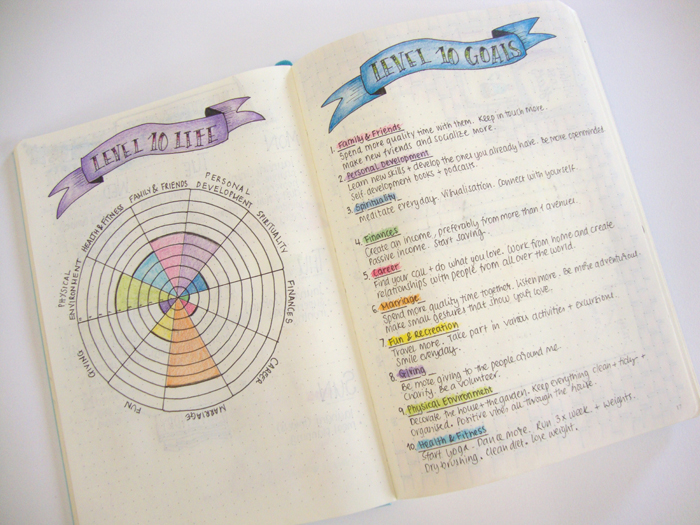 LEVEL 10 LIFE
FAMILY & FRIENDS
PERSONAL DEVELOPMENT
SPIRITUALITY
FINANCES
CAREER
MARRIAGE
FUN
GIVING
PHYSICAL ENVIRONMENT
HEALTH & FITNESS
LEVEL 10 GOALS
1. Family & Friends
Spend more quality time with them. Keep in touch more.
make new friends and socialize more.
2. Personal Development
Learn new skills + develop the ones you already have. Be more openminded
Self development books + podcasts.
3. Spirituality
meditate everyday. Visualisation. Connect with yourself.
4. Finances
Create an income, preferably from more than 1 avenues.
Passive income. Start saving.
5. Career
Find your call + do what you love. Work from home and create
relationships with people from all over the world.
6. Marriage
Spend more quality time together. Listen more. Be more adventurous.
Make small gestures that show your love.
7. Fun & Recreation
Travel more. Take part in various activities +
Smile everyday.
8. Giving
Be more giving to the people around me.
Charity. Be a volunteer.
9. Physical Environment
Decorate the house + the garden. Keep everything clean + tidy +
Organised. Positive vibes all through the house.
10. Health & Fitness
Start yoga. Dance more. Run 3 x week. + weights.
Dry brushing. Clean diet. Lose weight.